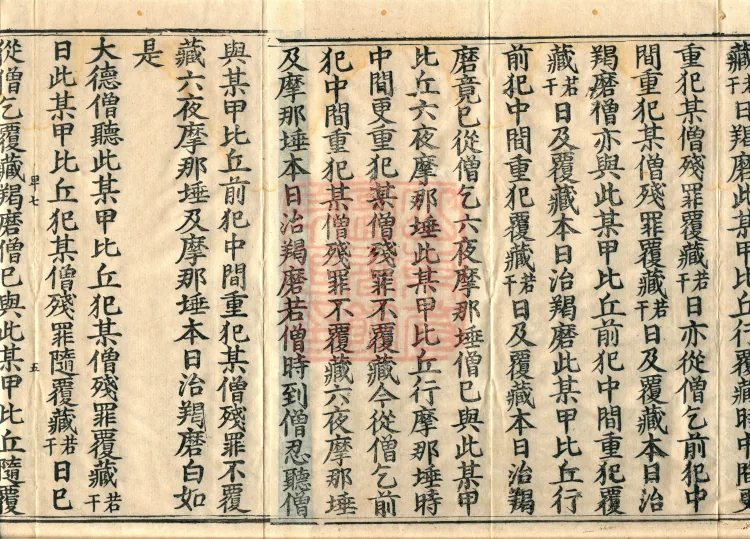 藏若干羯磨此某甲比丘行覆藏時中間更
重犯某僧殘罪覆藏若干日亦從僧乞前犯中
間重犯某僧殘罪覆藏若干日及覆藏本日治
羯磨僧亦與此某甲比丘前犯中間重犯覆
藏若干日及覆藏本日治羯磨此某甲比丘行
前犯中間重犯覆藏若干日及覆藏本日治羯
磨竟已從僧乞六夜摩那埵僧已與此某甲
比丘六夜摩那埵此某甲比丘行摩那埵時
中間更重犯某僧殘罪不覆藏今從僧乞前
犯中間重犯某僧殘罪不覆藏六夜摩那埵
及摩那埵本日治羯磨若僧時到僧忍聽僧
與某甲比丘前犯中間重犯某僧殘罪不覆
藏六夜摩那埵及摩那埵本日治羯磨白如
是
大德僧聽此某甲比丘犯某僧殘罪覆藏若干
日此某甲比丘犯某僧殘罪隨覆藏若干日已
卑七 五
從僧乞覆藏羯磨僧已與此某甲比丘隨覆